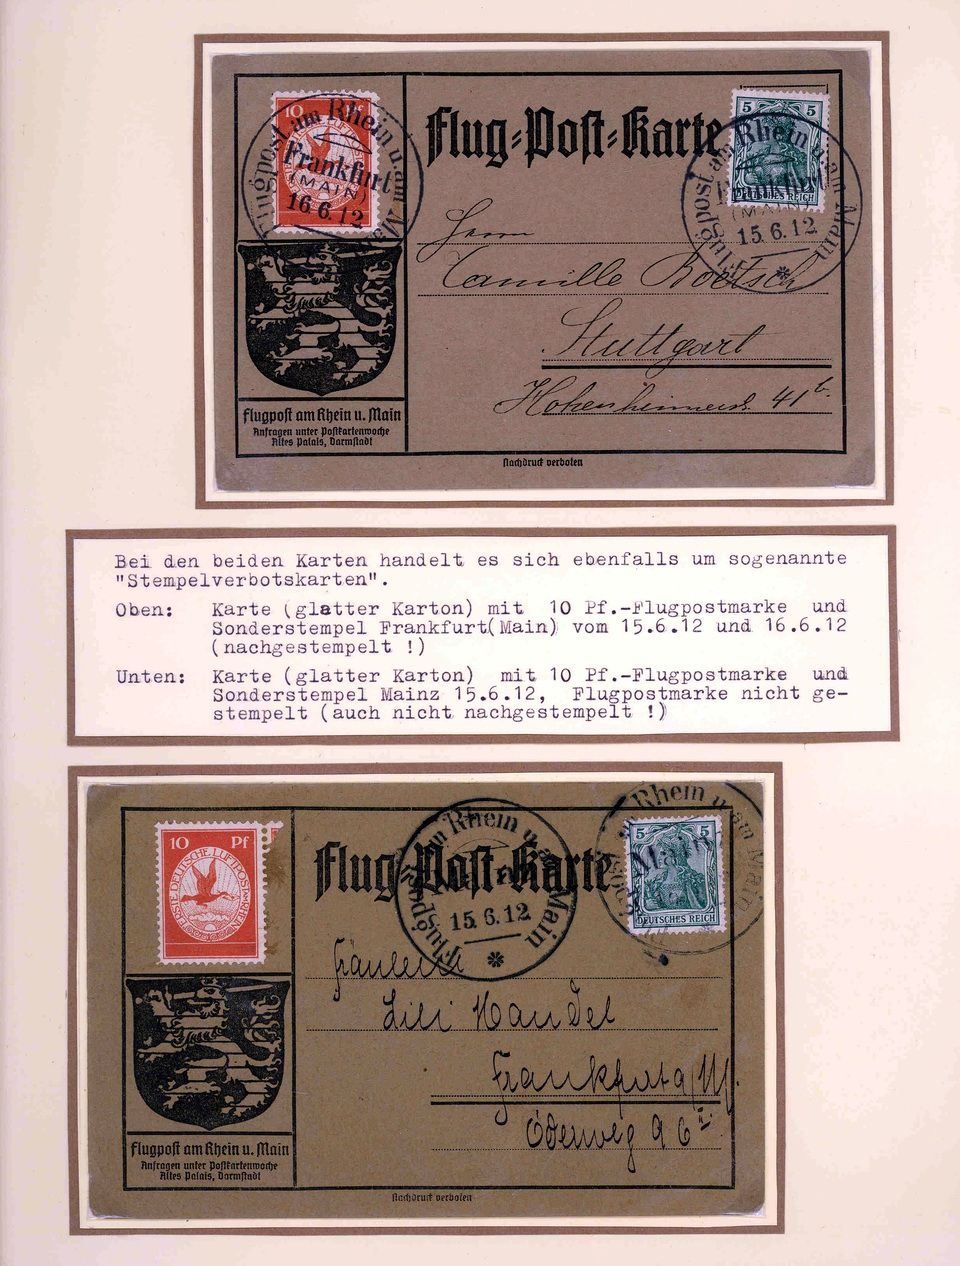 10 Pf
Flugpost am Rhein u. am Main
Frankfurt
(MAIN)
16.6.12
Flug-Post-Karte
5 5
DEUTSCHES REICH
Flugpost am Rhein u. am Main
Frankfurt
(MAIN)
15.6.12
Herrn
Camille Boetsch
Stuttgart
Hohenheimerstr. 41 b.
Flugpost am Rhein u. Main
Anfragen unter Postkartenwoche
Altes Palais, Darmstadt
Nachdruck verboten
Bei den beiden Karten handelt es sich ebenfalls um sogenannte
"Stempelverbotskarten".
Oben: Karte (glatter Karton) mit 10 Pf.-Flugpostmarke und
Sonderstempel Frankfurt(Main) vom 15.6.12 und 16.6.12
(nachgestempelt !)
Unten: Karte (glatter Karton) mit 10 Pf.-Flugpostmarke und
Sonderstempel Mainz 15.6.12, Flugpostmarke nicht ge-
stempelt (auch nicht nachgestempelt !)
10 Pf
ERSTE DEUTSCHE LUFTPOST AM RHEIN
Flug-Post-Karte
Flugpost am Rhein u. am Main
15.6.12
5 5
DEUTSCHES REICH
am Rhein u. am Main
Mainz
Fräulein
Lili Mandel
Frankfurt a/M.
Öderweg 96
Flugpost am Rhein u. Main
Anfragen unter Postkartenwoche
Altes Palais, Darmstadt
Nachdruck verboten